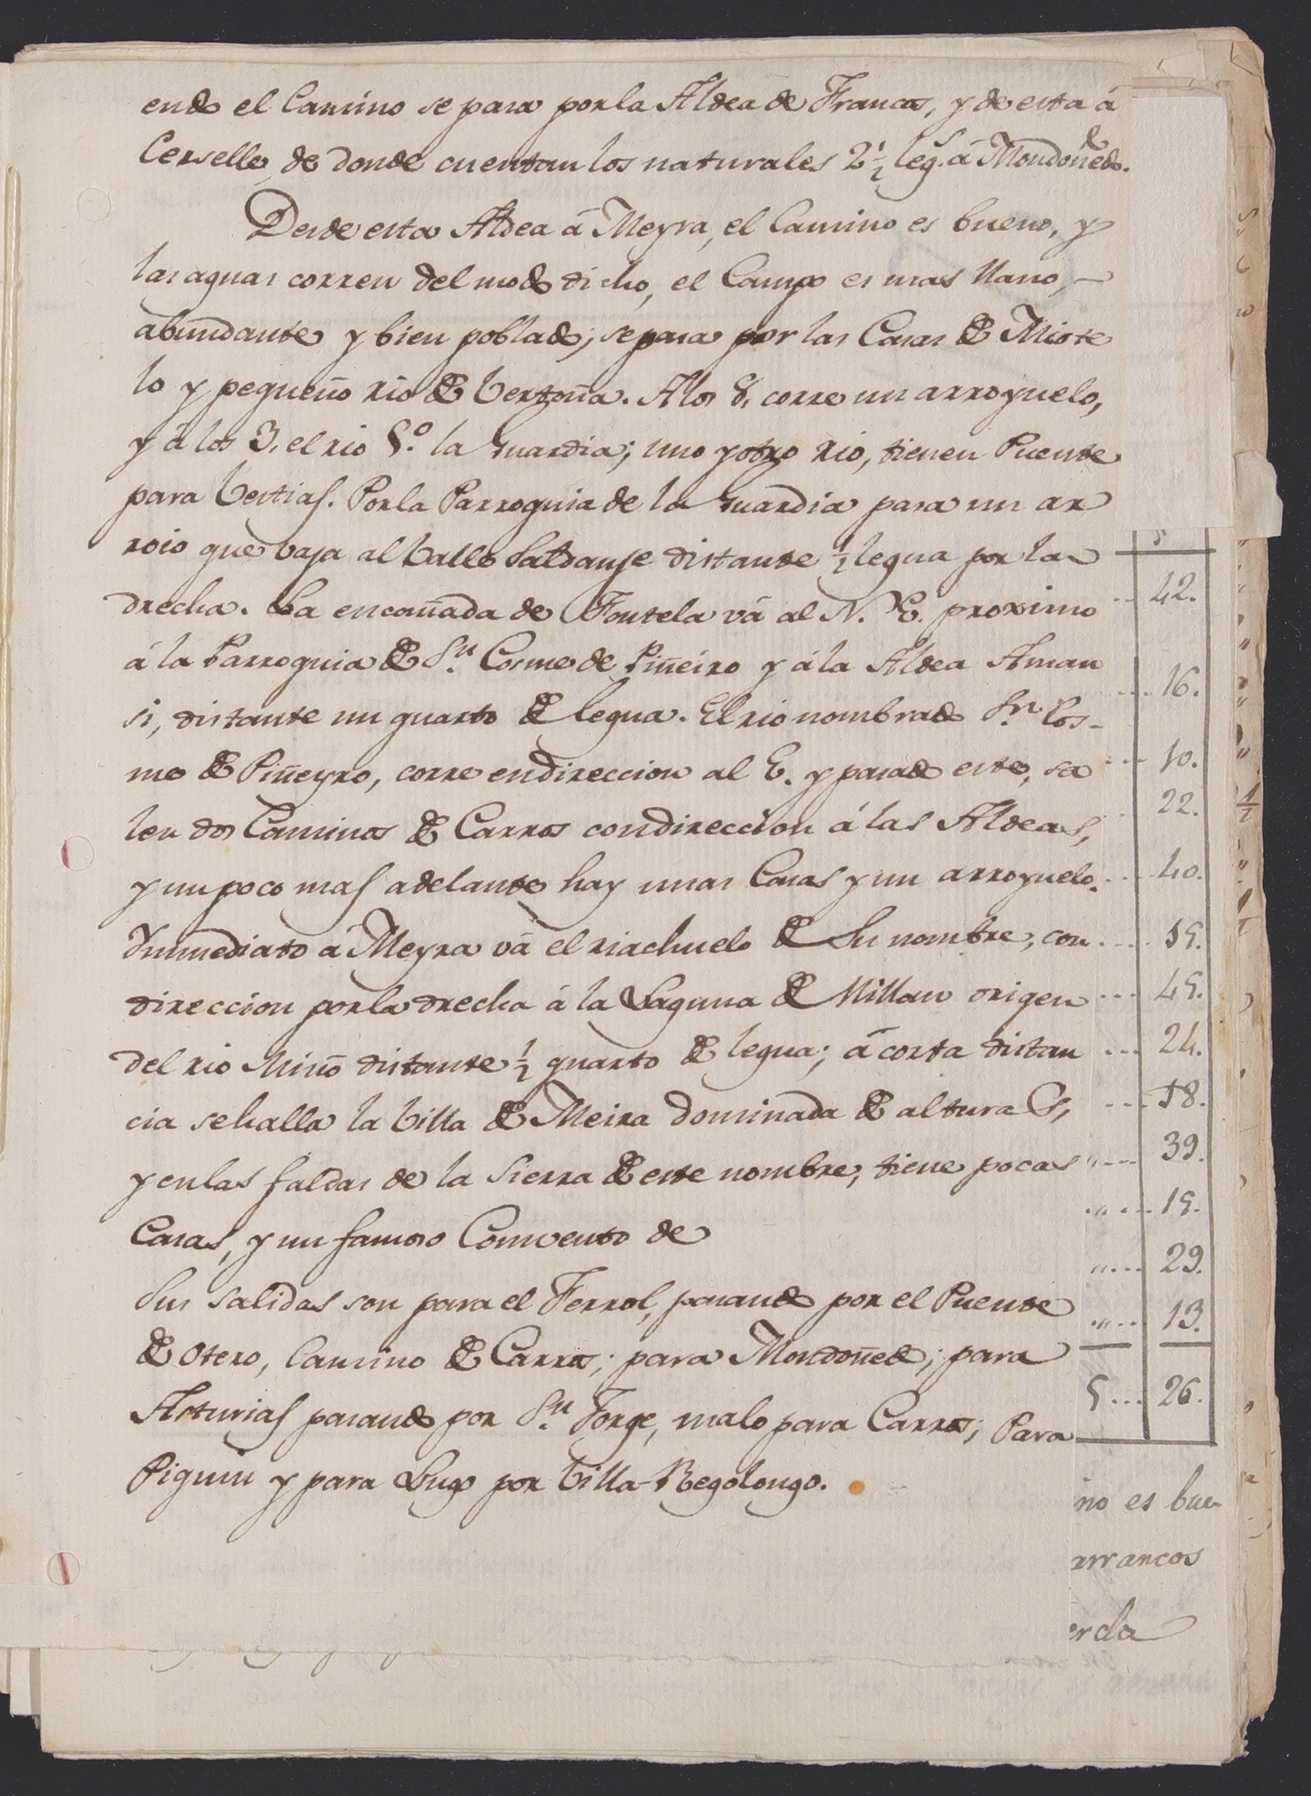 endo el Camino se pasa por la Aldea de Francos, y de esta á
Cerselle de donde cuentan los naturales 2 1/2 leg.s á Mondoñedo.
Desde esta Aldea á Meyra, el Camino es bueno, y
las aguas corren del modo dicho, el Campo es mas llano,
abundante y bien poblado; se pasa por las Casas de Miote
lo y pequeño rio de Bertoña. A los 8, corre un arroyuelo,
y á los 3, el rio S.o la Guardia; uno y otro rio, tienen Puente
para bestias. Por la Parroquia de la Guardia pasa un ar
roio que baja al Valle Saldange distante 1/2 legua por la
drecha. La encañada de Fontela vá al N. E. proximo
á la Parroquia de S.n Cosme de Piñeiro y á la Aldea Aman
si, distante un quarto de legua. El rio nombrado S.n Cos-
me de Piñeyro, corre en direccion al E. y pasado este, sa
len dos Caminos de Carros con direccion á las Aldeas,
y un poco mas adelante hay unas Casas y un arroyuelo.
Inmediato á Meyra vá el riachuelo de Su nombre, con
direccion por la drecha á la Laguna de Millan origen
del rio Miño distante 1/2 quarto de legua; á corta distan
cia se halla la Villa de Meira dominada de alturas,
y en las faldas de la Sierra de este nombre, tiene pocas
Casas, y un famoso Convento de
Sus salidas son para el Ferrol, pasando por el Puente
de Otero, Camino de Carros; para Mondoñedo; para
Asturias pasando por S.n Jorge, malo para Carros; Para
Piquin y para Lugo por Villa-Regolongo.
42.
16.
10.
22.
40.
15.
45.
24.
18.
39.
15.
29.
13.
5... 26.
no es bue
arrancos
erda